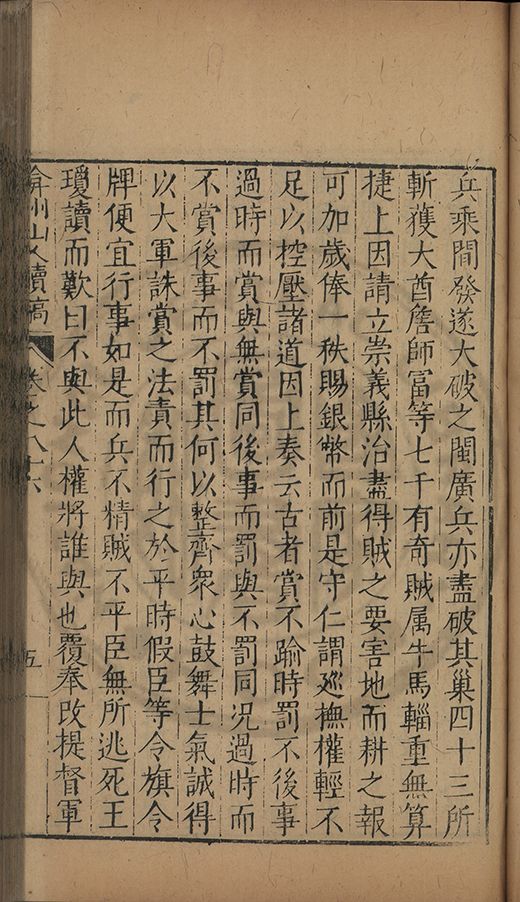 兵乘間發遂大破之閩廣兵亦盡破其巢四十三所
斬獲大酋詹師富等七千有奇賊属牛馬輜重無算
捷上因請立崇義縣治盡得賊之要害地而耕之報
可加歲俸一秩賜銀幣而前是守仁謂廵撫權輕不
足以控壓諸道因上奏云古者賞不踰時罰不後事
過時而賞與無賞同後事而罰與不罰同況過時而
不賞後事而不罰其何以整齊衆心鼓舞士氣誠得
以大軍誅賞之法責而行之於平時假臣等令旗令
牌便宜行事如是而兵不精賊不平臣無所逃死王
瓊讀而歎曰不與此人權將誰與也覆奉改提督軍
弇州山人續稿 卷之八十六 五